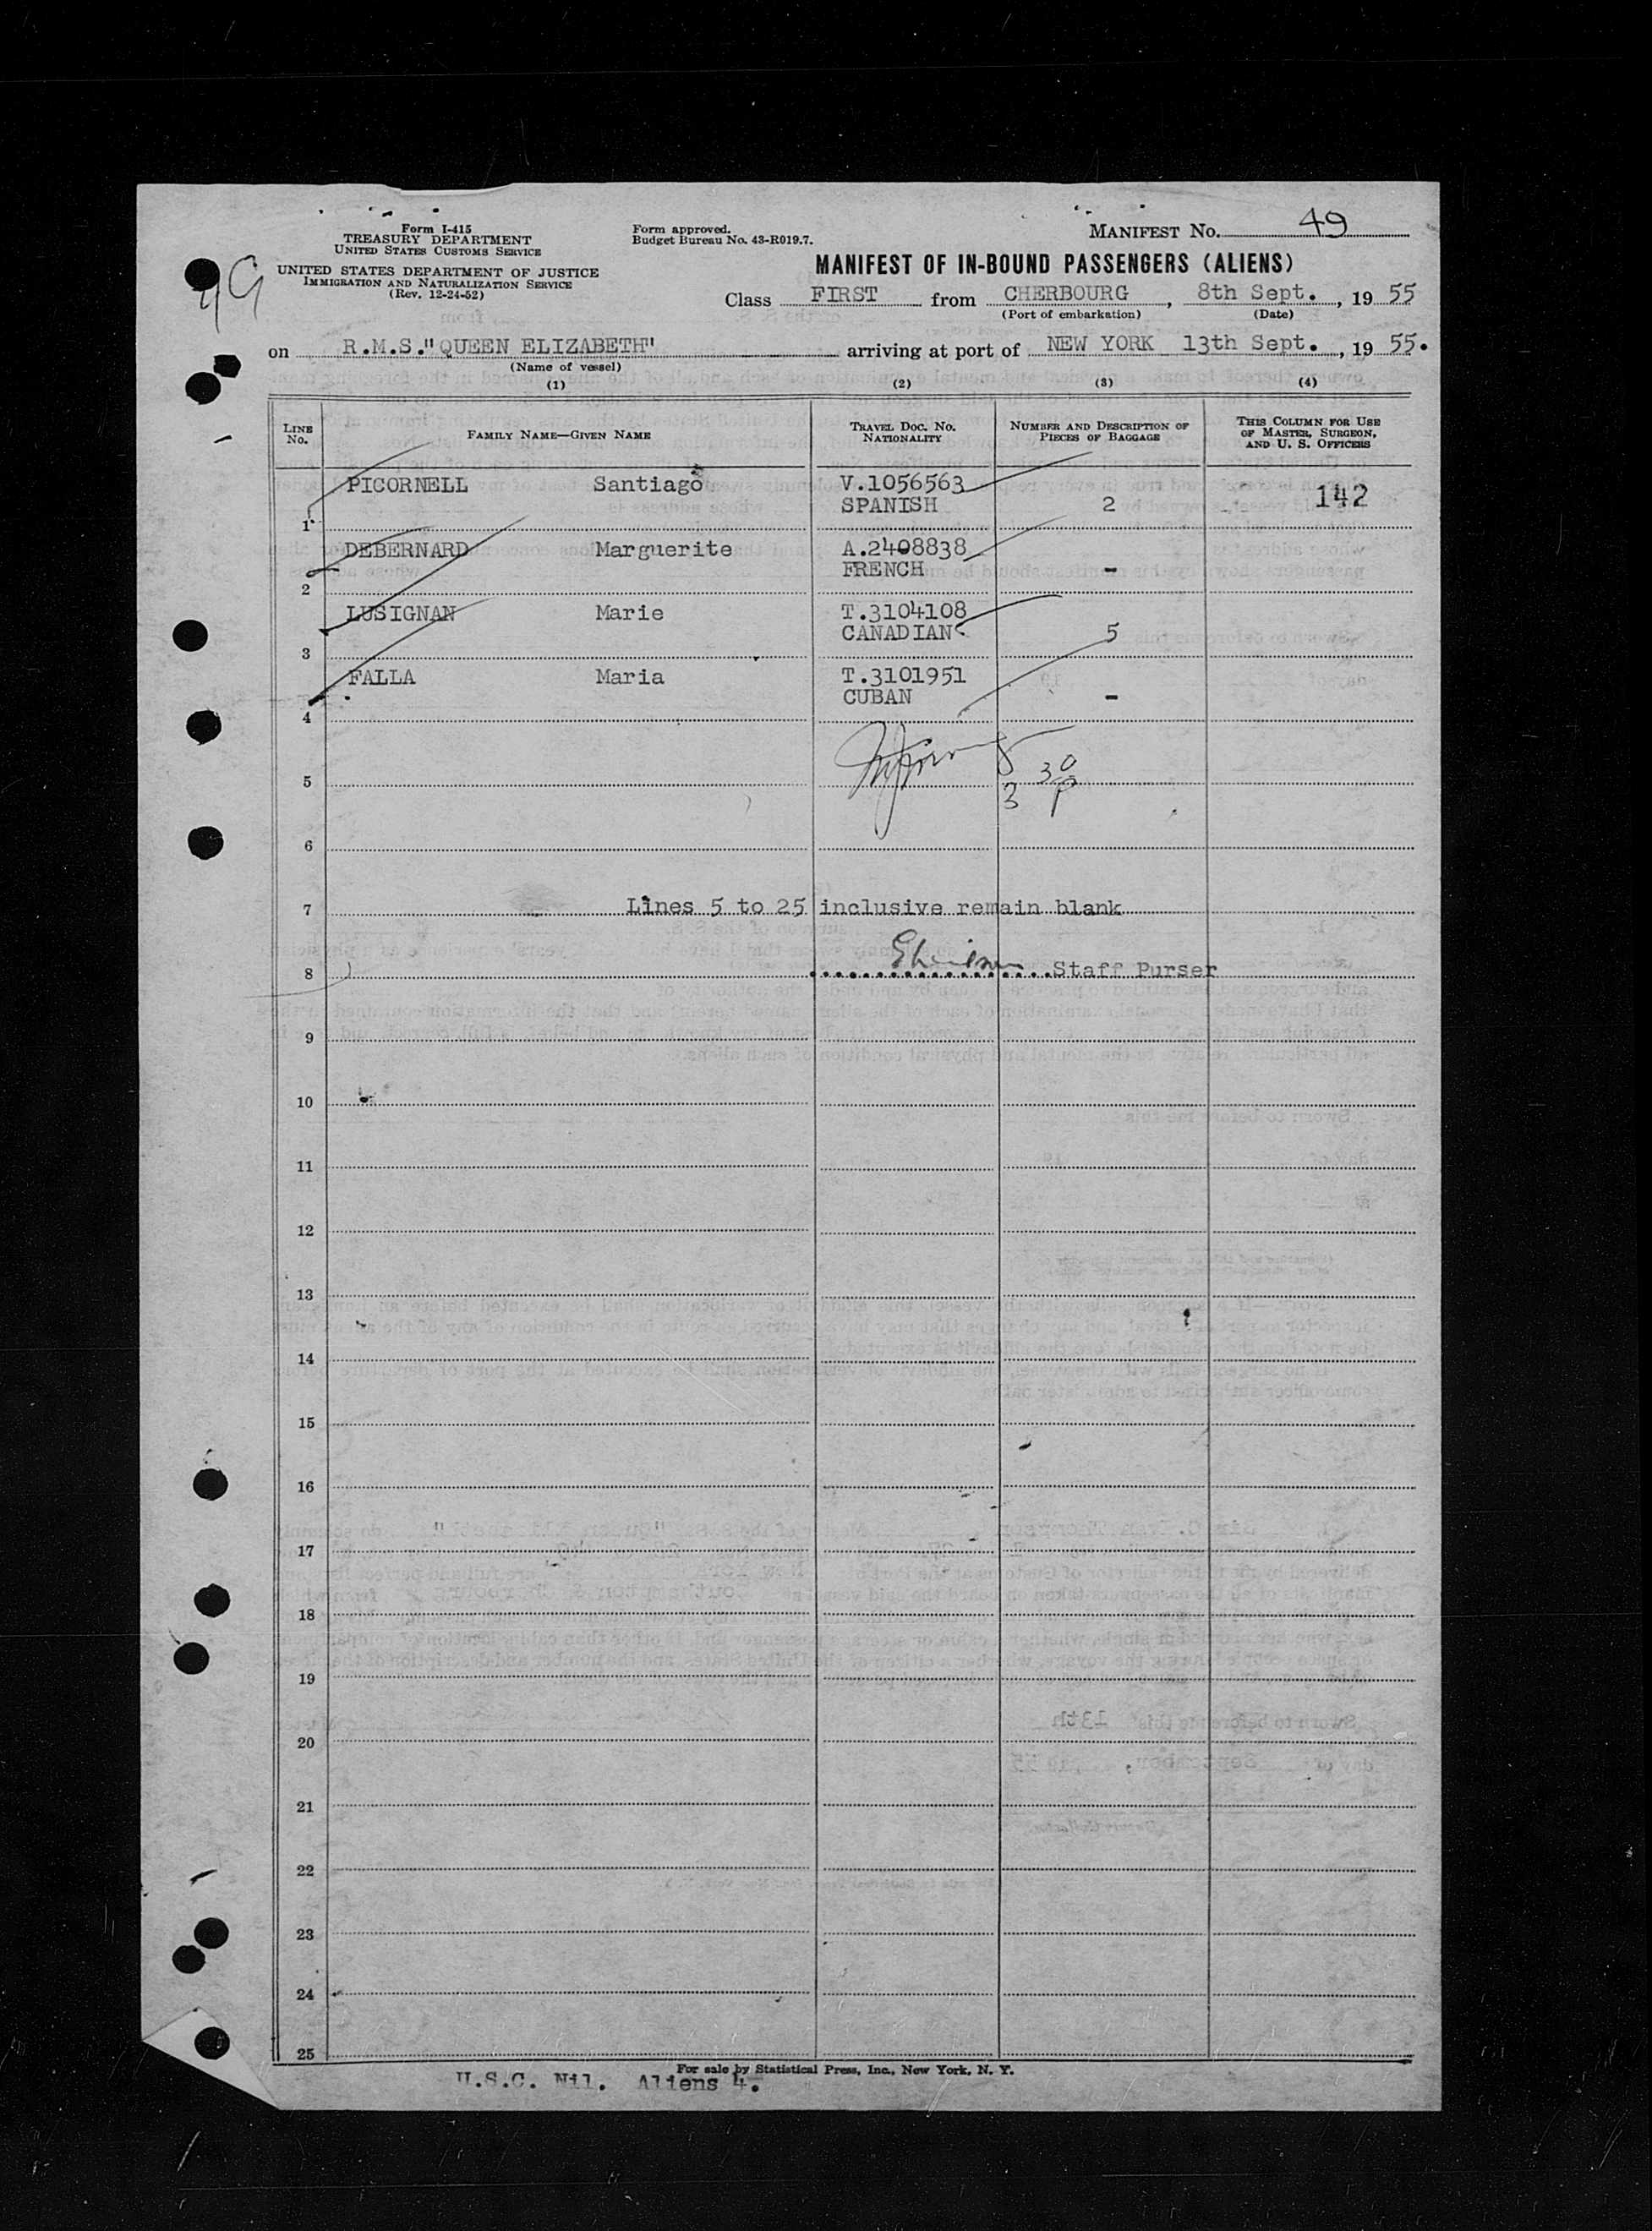 Form I-415
TREASURY DEPARTMENT
UNITED STATES CUSTOMS SERVICE
UNITED STATES DEPARTMENT OF JUSTICE
IMMIGRATION AND NATURALIZATION SERVICE
(Rev. 12-24-52)
Form approved.
Budget Bureau No. 43-R019.7.
MANIFEST No. 49
MANIFEST OF IN-BOUND PASSENGERS (ALIENS)
Class FIRST from CHERBOURG, 8th Sept., 19 55
(Port of embarkation) (Date)
on R.M.S."QUEEN ELIZABETH" arriving at port of NEW YORK 13th Sept., 19 55.
(Name of vessel)
(1) (2) (3) (4)
LINE No. FAMILY NAME—GIVEN NAME TRAVEL DOC. NO. NATIONALITY NUMBER AND DESCRIPTION OF PIECES OF BAGGAGE THIS COLUMN FOR USE OF MASTER, SURGEON, AND U. S. OFFICERS
PICORNELL Santiago V.1056563
1 SPANISH 2 142
DEBERNARD Marguerite A.2408838
2 FRENCH -
LUSIGNAN Marie T.3104108
3 CANADIAN 5
FALLA Maria T.3101951
4 CUBAN -
5 3 30 P
6
7 Lines 5 to 25 inclusive remain blank
8 Staff Purser
9
10
11
12
13
14
15
16
17
18
19
20
21
22
23
24
25
For sale by Statistical Press, Inc., New York, N. Y.
U.S.C. Nil. Aliens 4.